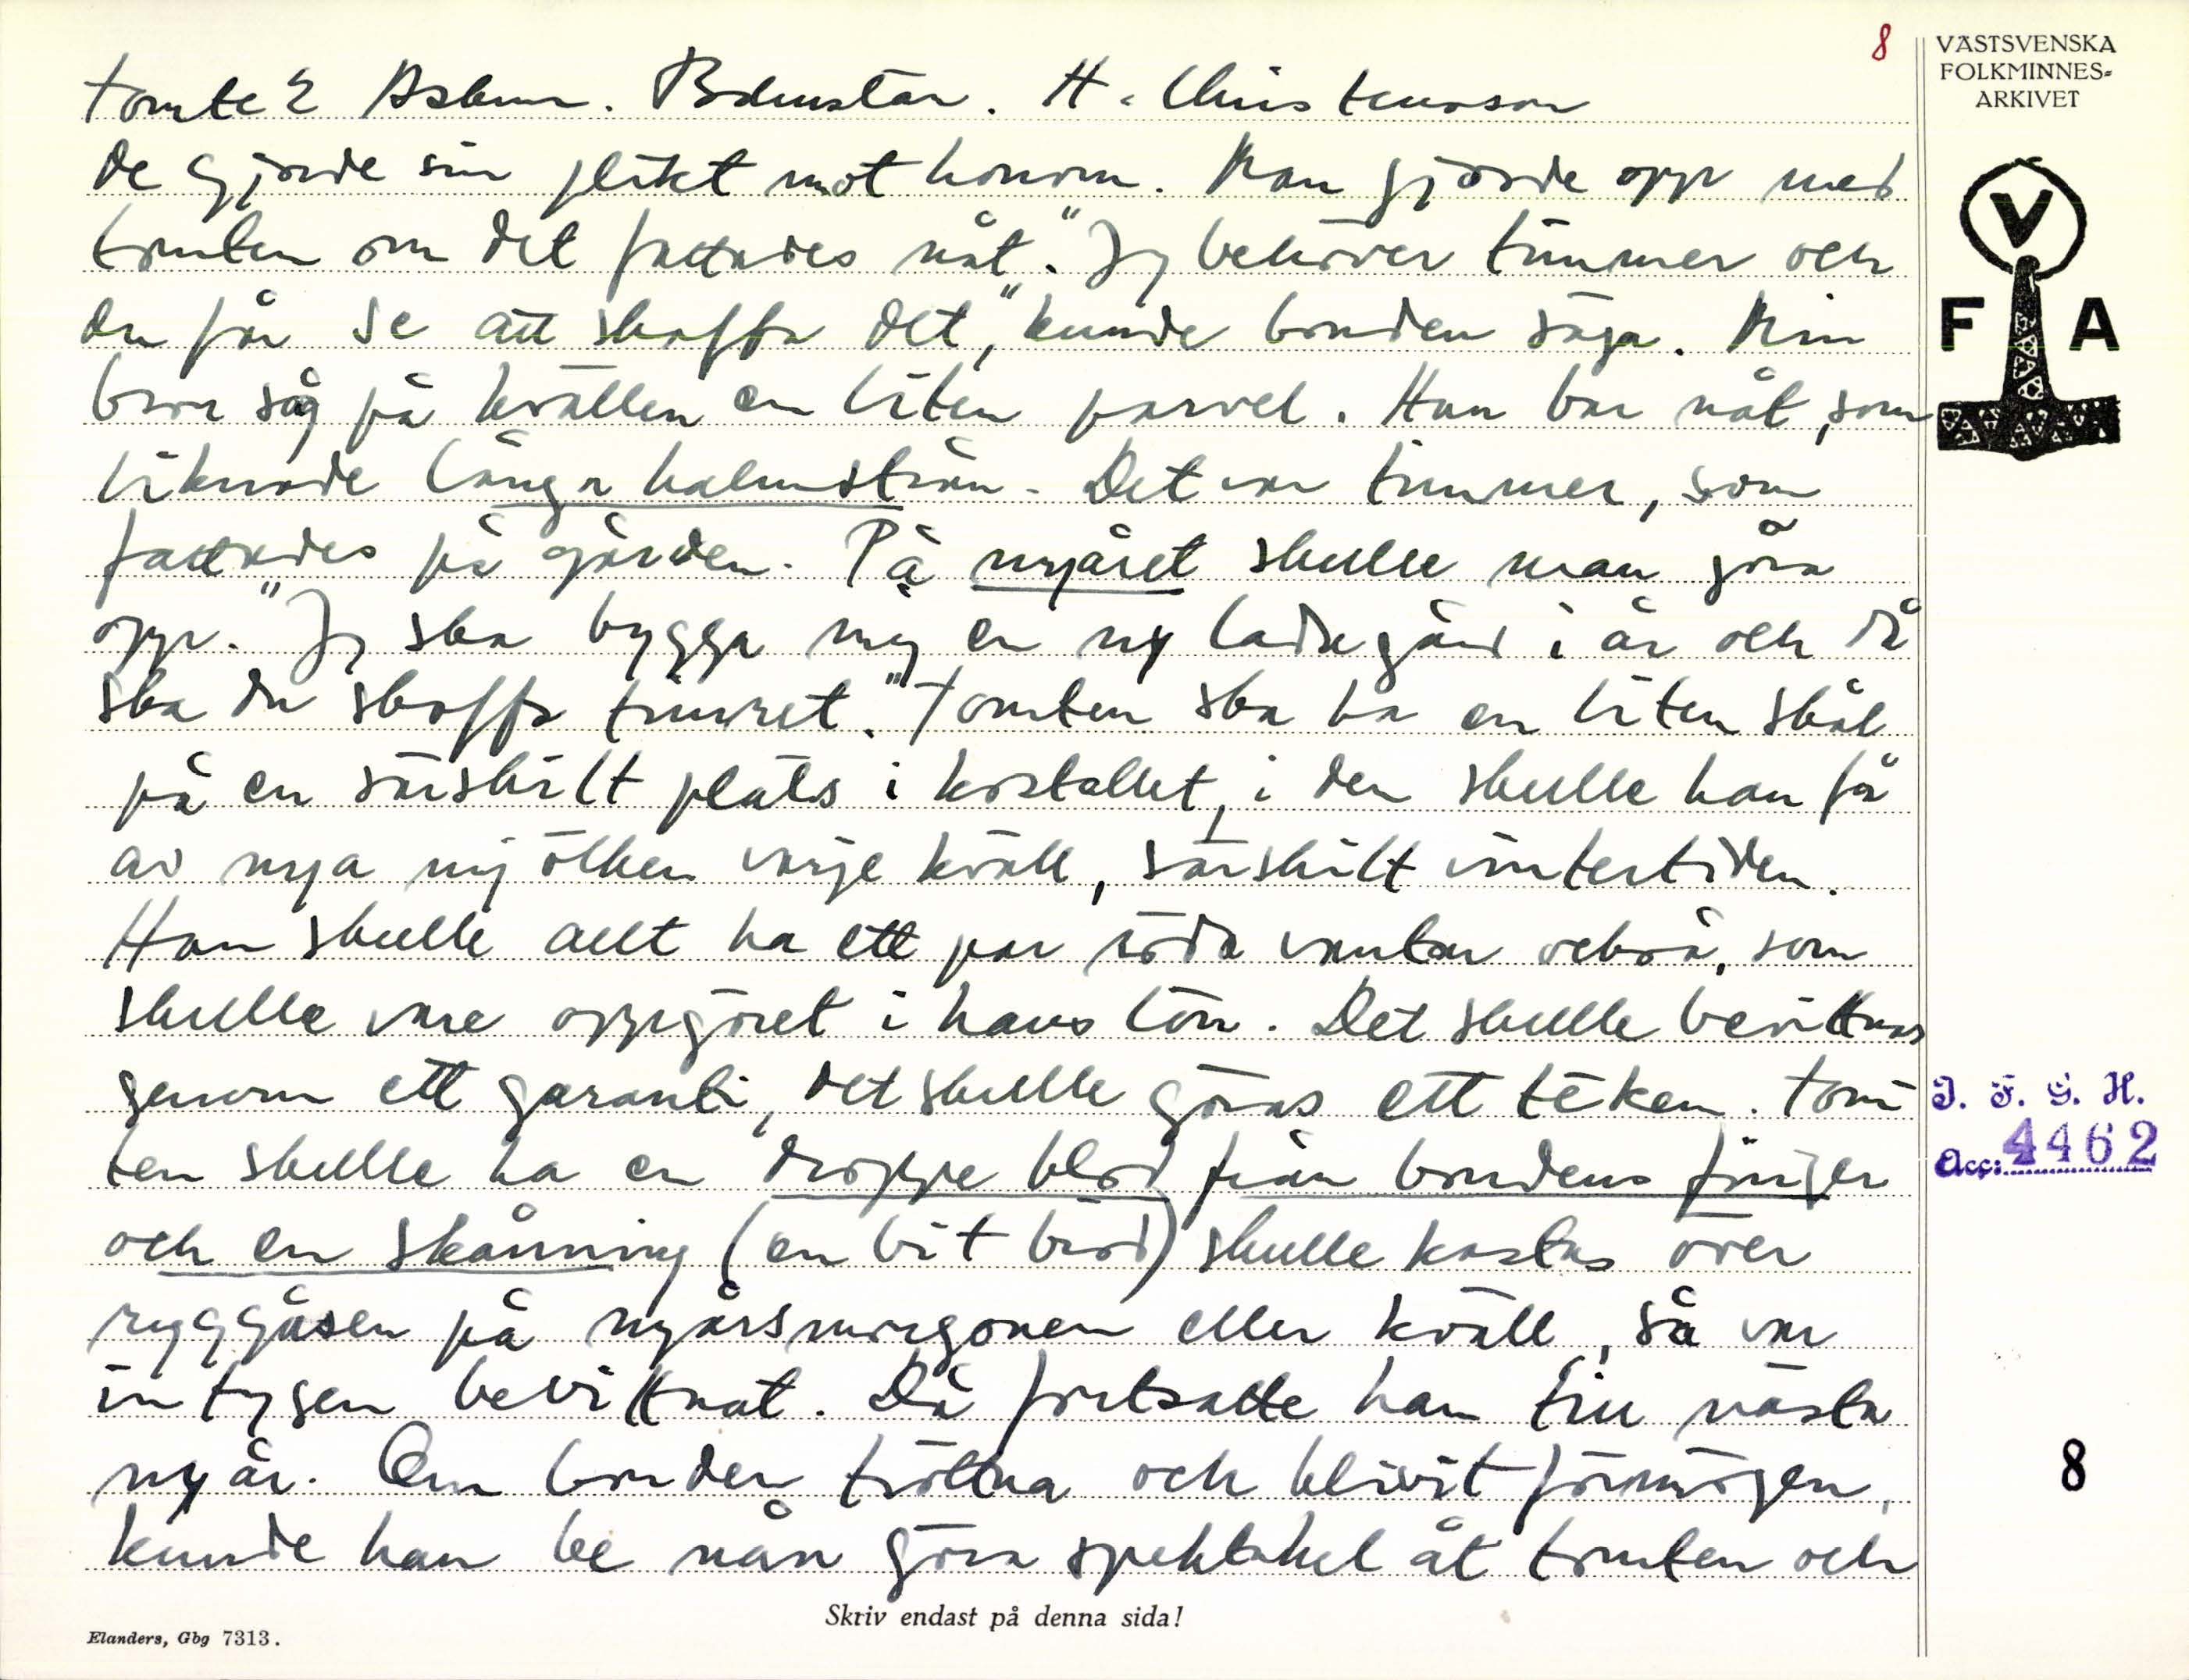 8
VÄSTSVENSKA
FOLKMINNES=
ARKIVET
Tomte 2 Askum. Bohuslän. H. Christensson
de gjorde sin plikt mot honom. Man gjorde opp med
tomten om det fattades nåt. "Jag behöver timmer och
du får se att skaffa det," kunde bonden säga. Min
bror såg på kvällen en liten parvel. Han bar nåt, som
liknade långa halmstrån. Det var timmer, som
fattades på gården. På nyåret skulle man göra
opp. "Jag ska bygga mig en ny ladugård i år och då
ska du skaffa timret." Tomten ska ha en liten skål
på en särskilt plats i kostallet, i den skulle han få
av nya mjölken varje kväll, särskilt vintertiden.
Han skulle allt ha ett par röda vantar också, som
skulle vare oppgöret i hans lön. Det skulle bevittnas
genom ett garanti, det skulle göras ett tecken. Tom-
ten skulle ha en droppe blod från bondens finger
och en skånning (en bit bröd) skulle kastas över
ryggåsen på nyårsmorgonen eller kväll, så var
intygen bevittnat. Då fortsatte han till nästa
nyår. Om bonden tröttna och blivit förmögen,
kunde han be nån göra spektakel åt tomten och
V
F A
I. F. G. H.
Acc: 4462
8
Skriv endast på denna sida!
Elanders, Gbg 7313.